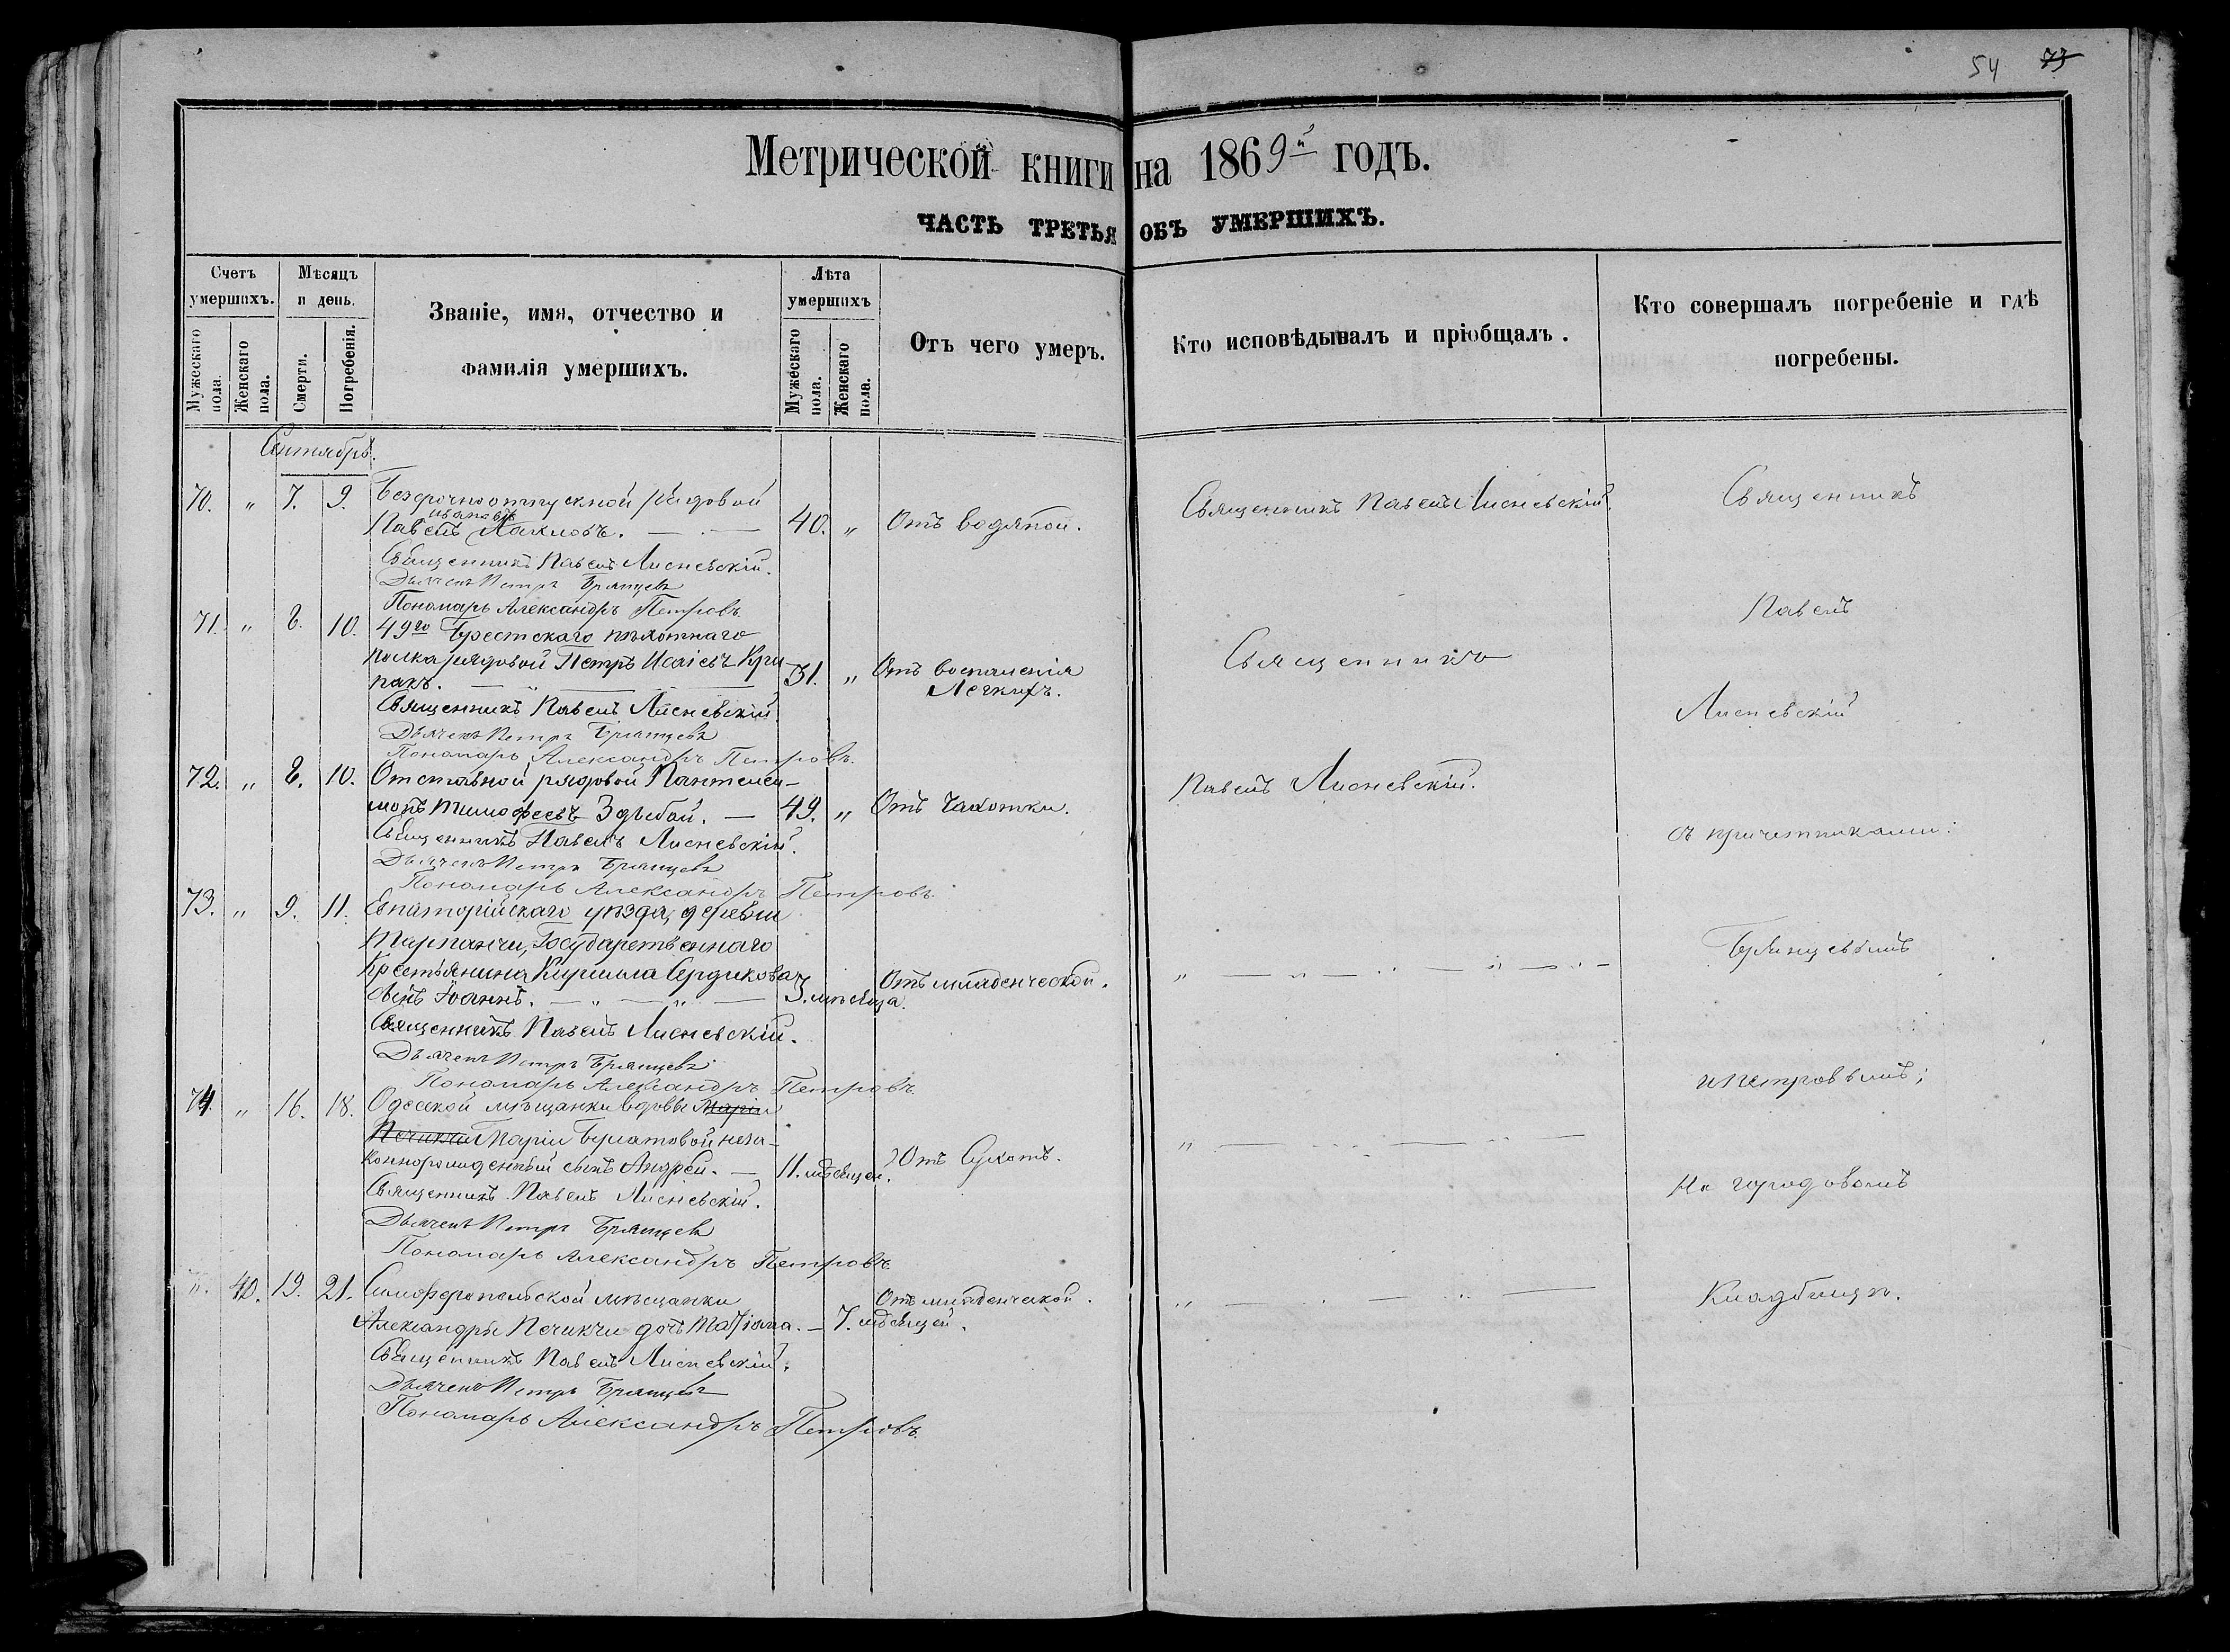 54 73
Метрической книги на 1869й годъ.
ЧАСТЬ ТРЕТЬЯ ОБЪ УМЕРШИХЪ.
Счетъ умершихъ.
Мужескаго пола.
Женскаго пола.
Мѣсяцъ и день.
Смерти.
Погребенія.
Званіе, имя, отчество и
фамилія умершихъ.
Лѣта умершихъ
Мужескаго пола.
Женскаго пола.
Отъ чего умеръ.
Кто исповѣдывалъ и пріобщалъ.
Кто совершалъ погребеніе и гдѣ
погребены.
Сентябрь.
70. " 7. 9. Безсрочноотпускной рядовой
Ивановъ
Павелъ 40. " Отъ водяной. Священникъ Павелъ Лисневскій. Священникъ
Священникъ Павелъ Лисневскій.
Дьячекъ Петръ Брянцевъ
Пономарь Александръ Петровъ Павелъ
71. " 8. 10. 49го Брестскаго пѣхотнаго
полка рядовой Петръ Исаіевъ Кри
пакъ. 31. " Отъ воспаленія Священникъ
Легкихъ.
Священникъ Павелъ Лисневскій. Лисневскій
Дьячекъ Петръ Брянцевъ
Пономарь Александръ Петровъ.
72. " 8. 10. Отставной рядовой Пантелеи- Павелъ Лисневскій.
монъ Тимофеевъ Здыбай. 49. " Отъ Чахотки.
Священникъ Павелъ Лисневскій. съ причетниками:
Дьячекъ Петръ Брянцевъ
Пономарь Александръ Петровъ.
73. " 9. 11. Евпаторійскаго уѣзда, деревни
Тарпанчи, Государственнаго Брянцевымъ
Крестьянина Кирилла Сердюкова
сынъ Іоаннъ. 3. мѣсяца. Отъ младенческой. "
Священникъ Павелъ Лисневскій.
Дьячекъ Петръ Брянцевъ
Пономарь Александръ Петровъ. и Петровымъ;
74. " 16. 18. Одесской мѣщанки вдовы Маріи
Печикчи Маріи Булатовой неза-
коннорожденный сынъ Андрей. 11. мѣсяцей. Отъ Сухотъ. "
Священникъ Павелъ Лисневскій. На городовомъ
Дьячекъ Петръ Брянцевъ
Пономарь Александръ Петровъ.
". 40. 19. 21. Симферопольской мѣщанки Отъ младенческой. " Кладбищѣ.
Александры Печикчи дочь 7. мѣсяцей.
Священникъ Павелъ Лисневскій.
Дьячекъ Петръ Брянцевъ
Пономарь Александръ Петровъ.